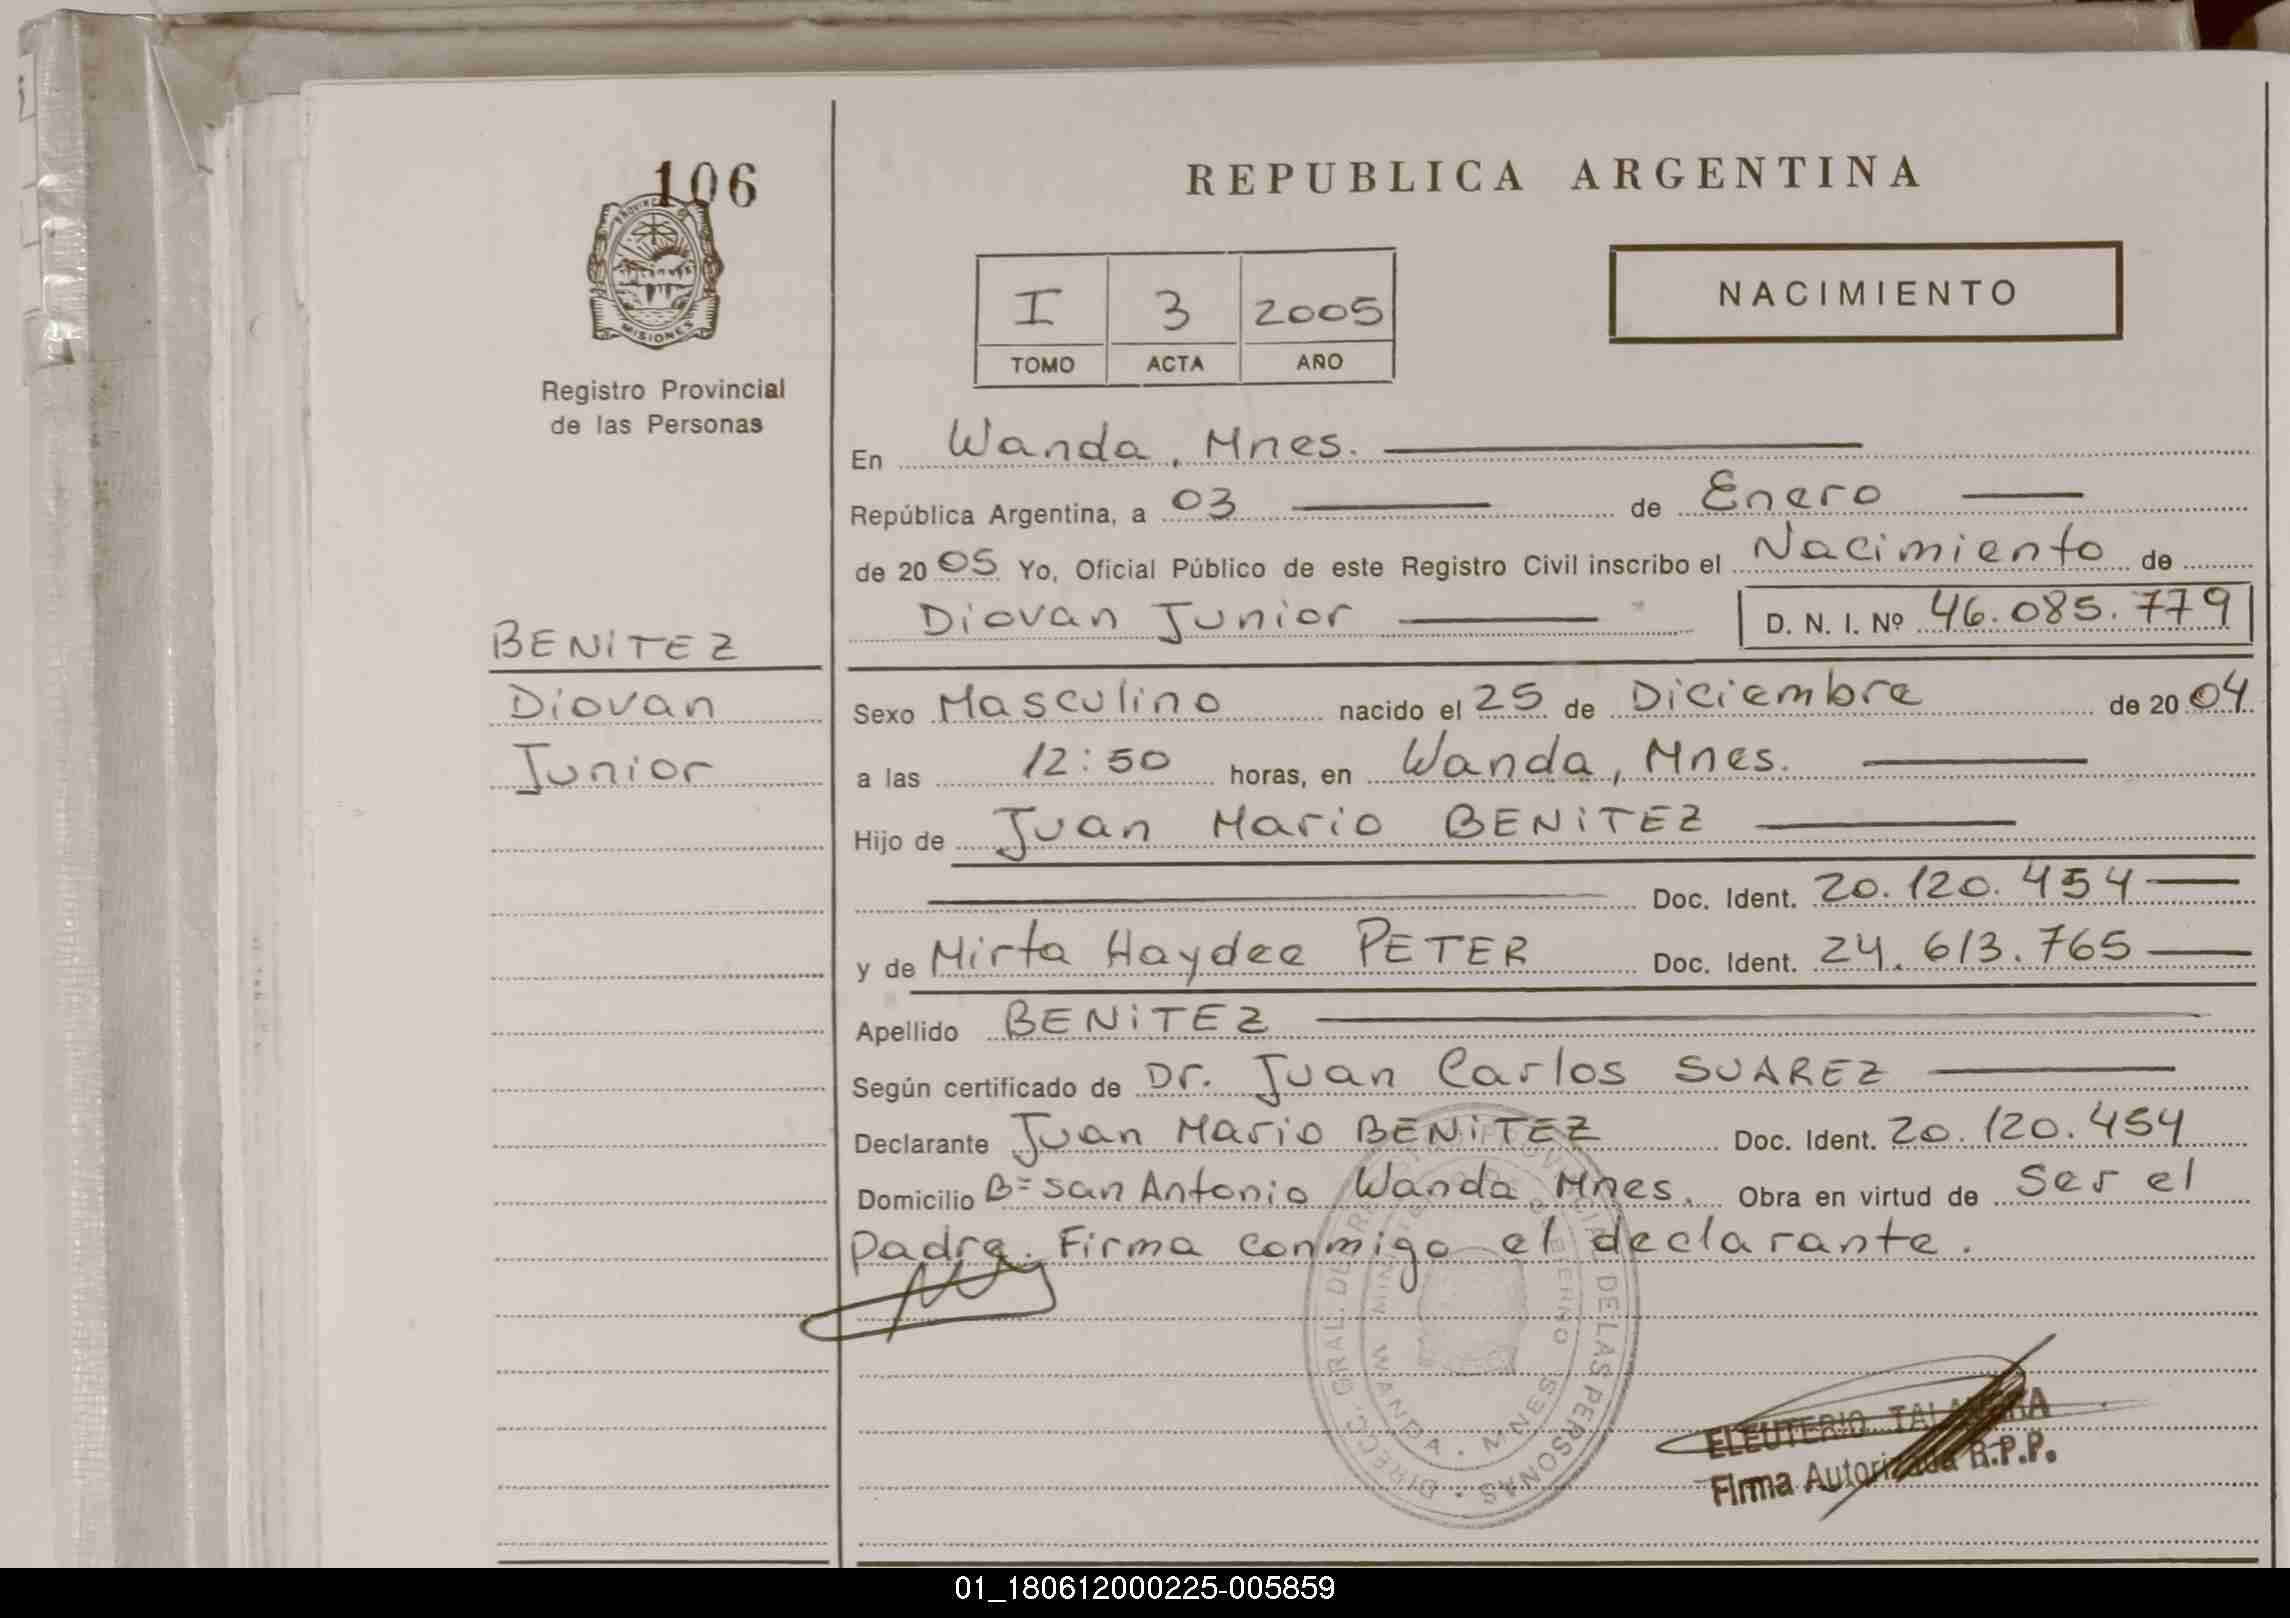 106
PROVINCIA DE
MISIONES
Registro Provincial
de las Personas
REPUBLICA ARGENTINA
I 3 2005
TOMO ACTA AÑO
NACIMIENTO
En Wanda, Mnes.
República Argentina, a 03 de Enero
de 2005 Yo, Oficial Público de este Registro Civil inscribo el Nacimiento de
Diovan Junior D. N. I. Nº 46.085.779
BENITEZ
Diovan
Junior
Sexo Masculino nacido el 25 de Diciembre de 2004
a las 12:50 horas, en Wanda, Mnes.
Hijo de Juan Mario BENITEZ
Doc. Ident. 20.120.454
y de Mirta Haydee PETER Doc. Ident. 24.613.765
Apellido BENITEZ
Según certificado de Dr. Juan Carlos SUAREZ
Declarante Juan Mario BENITEZ Doc. Ident. 20.120.454
Domicilio Bº San Antonio Wanda Mnes. Obra en virtud de Ser el
padre. Firma conmigo el declarante.
DIRECC. GRAL. DE PROVINCIAL DE LAS PERSONAS
WANDA - MNES
ELEUTERIO
Firma Autorizada R.P.P.
01_180612000225-005859